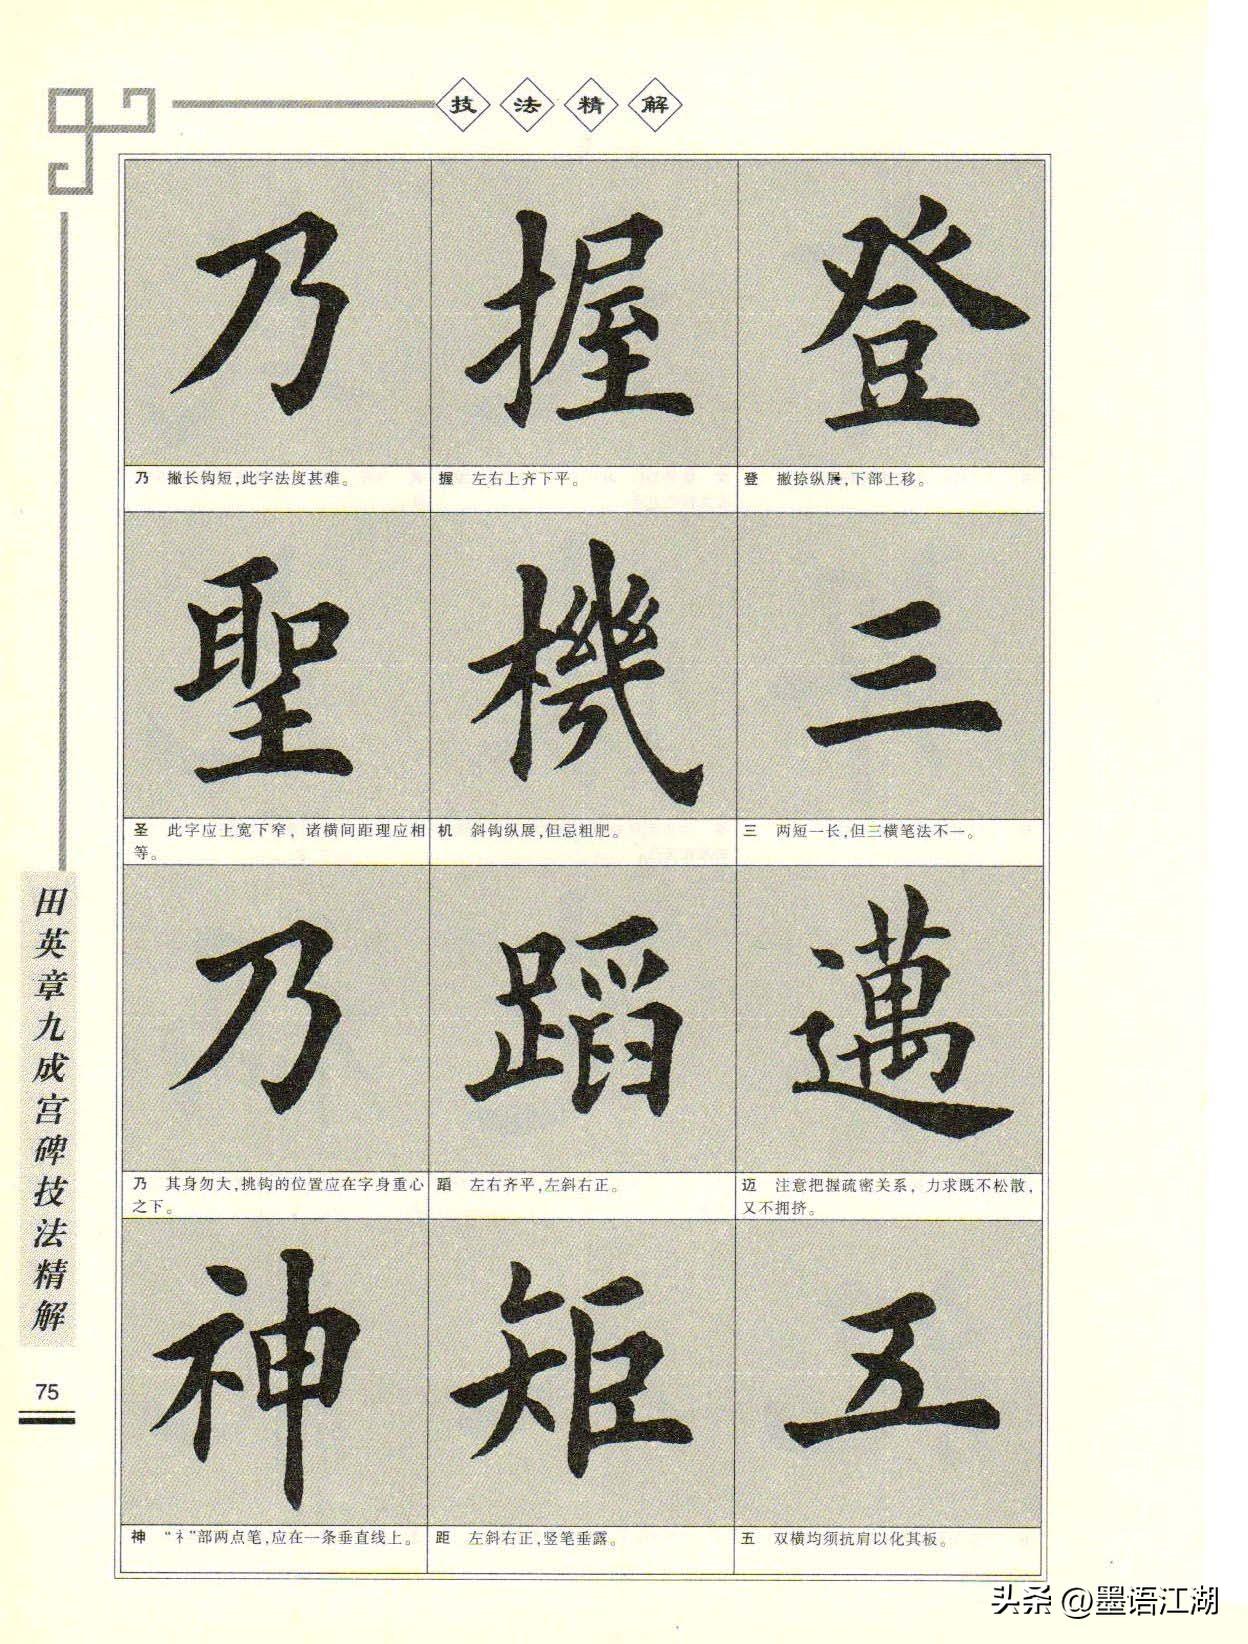 技法精解
乃 握 登
乃 撇长钩短,此字法度甚难。
握 左右上齐下平。
登 撇捺纵展,下部上移。
聖 機 三
圣 此字应上宽下窄，诸横间距理应相
等。
机 斜钩纵展,但忌粗肥。
三 两短一长,但三横笔法不一。
乃 蹈 邁
乃 其身勿大,挑钩的位置应在字身重心
之下。
蹈 左右齐平,左斜右正。
迈 注意把握疏密关系，力求既不松散，
又不拥挤。
神 矩 五
神 “礻”部两点笔,应在一条垂直线上。
距 左斜右正,竖笔垂露。
五 双横均须抗肩以化其板。
田英章九成宫碑技法精解
75
头条 @墨语江湖